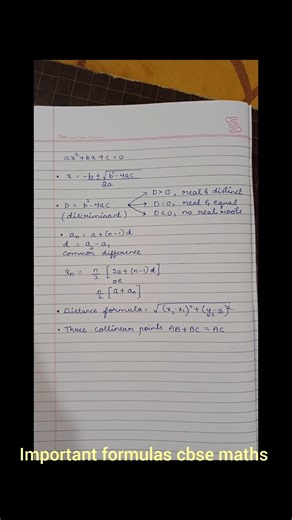 ax² + bx + c = 0
• x = -b ± √b² - 4ac / 2a
• D = b² - 4ac
(discriminant)
D > 0, real & distinct
D = 0, real & equal
D < 0, no real roots
• aₙ = a + (n-1)d
d = a₂ - a₁
common difference
Sₙ = n/2 [2a + (n-1)d]
OR
n/2 [a + aₙ]
• Distance formula = √(x₂-x₁)² + (y₂-y₁)²
• Three collinear points AB + BC = AC
Important formulas cbse maths